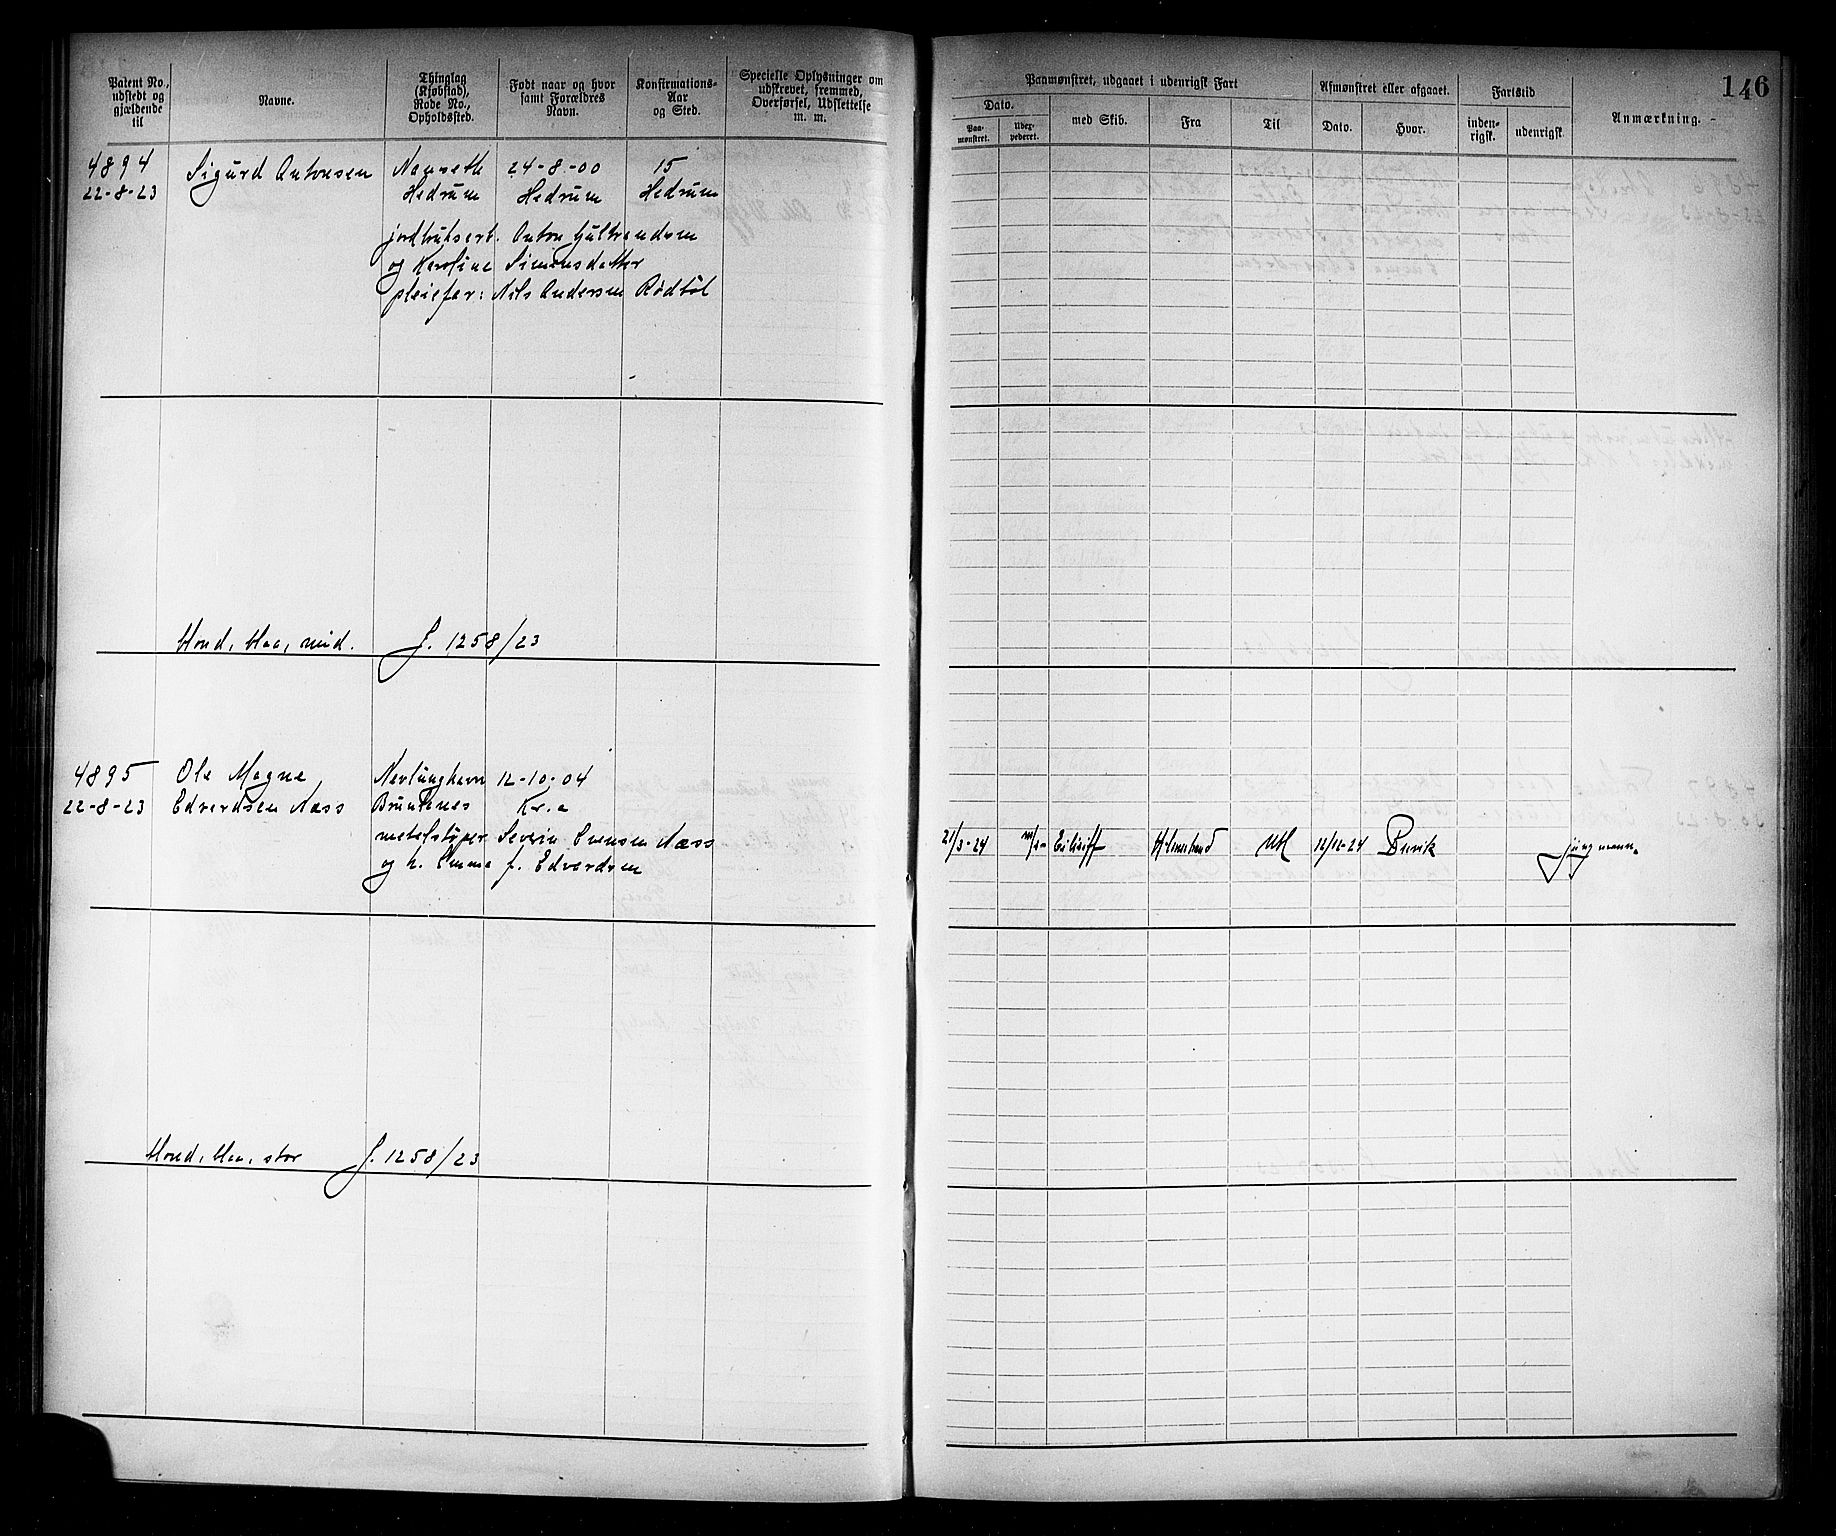 Patent No., udstedt og gjældende til
Navne.
Thinglag (Kjøbstad), Rode No., Opholdssted.
Født naar og hvor samt Forældres Navn.
Konfirmations-Aar og Sted.
Specielle Oplysninger om udskrevet, fremmed, Overførsel, Udslettelse m. m.
Paamønstret, udgaaet i udenrigsk Fart
Dato.
Paa-mønstret.
Udex-pederet.
med Skib.
Fra
Til
Afmønstret eller afgaaet.
Dato.
Hvor.
Fartstid
inden-rigsk.
udenrigsk.
Anmærkning.
146
4894 Sigurd Antonsen Nanseth 24-8-00 15
22-8-23 Hedrum Hedrum Hedrum
jordbruksarb. Anton
og Karoline Simonsdatter
pleiefar: Nils Andersen Rødbøl
J. 1258/23
4895 Ole Magne Nevlunghavn 12-10-04
22-8-23 Edvardsen Næss Brunlanes Kr.a
metalstøper Severin Evensen Næss
og h. Emma f. Edvardsen
21/3-24 Holmestrand Utl 12/12-24 Brevik jungmann.
stor J. 1258/23